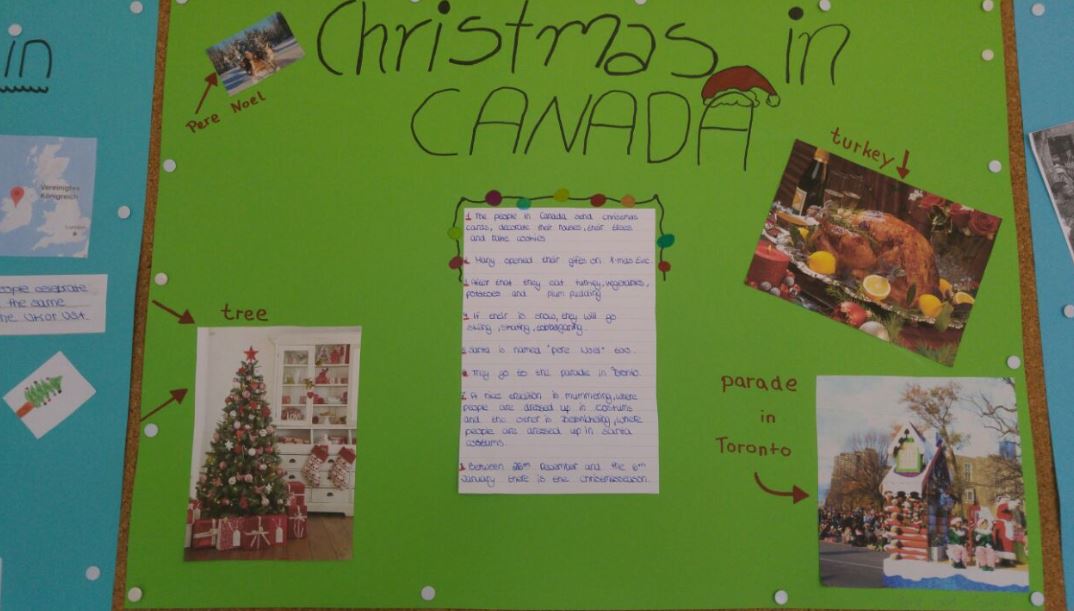 in
Christmas in
CANADA
Pere Noel
turkey
Vereinigtes
Königreich
London
1. The people in Canada send christmas
cards, decorate their houses, their trees
and bake cookies
2. Many opened their gifts on X-mas Eve.
3. After that they eat turkey, vegetables,
potatoes and plum pudding
4. If their is snow, they will go
skiing, skating,
5. Santa is named "pere Noel" too.
6. They go to the parade in Toronto.
7. A nice tradition is mummering, where
people are dressed up in costums
and the other is where
people are dressed up in santa
costums.
8. Between 26th December and the 6th
January there is the christmasseason.
people celebrate
the same
the UK or USA.
tree
parade
in
Toronto